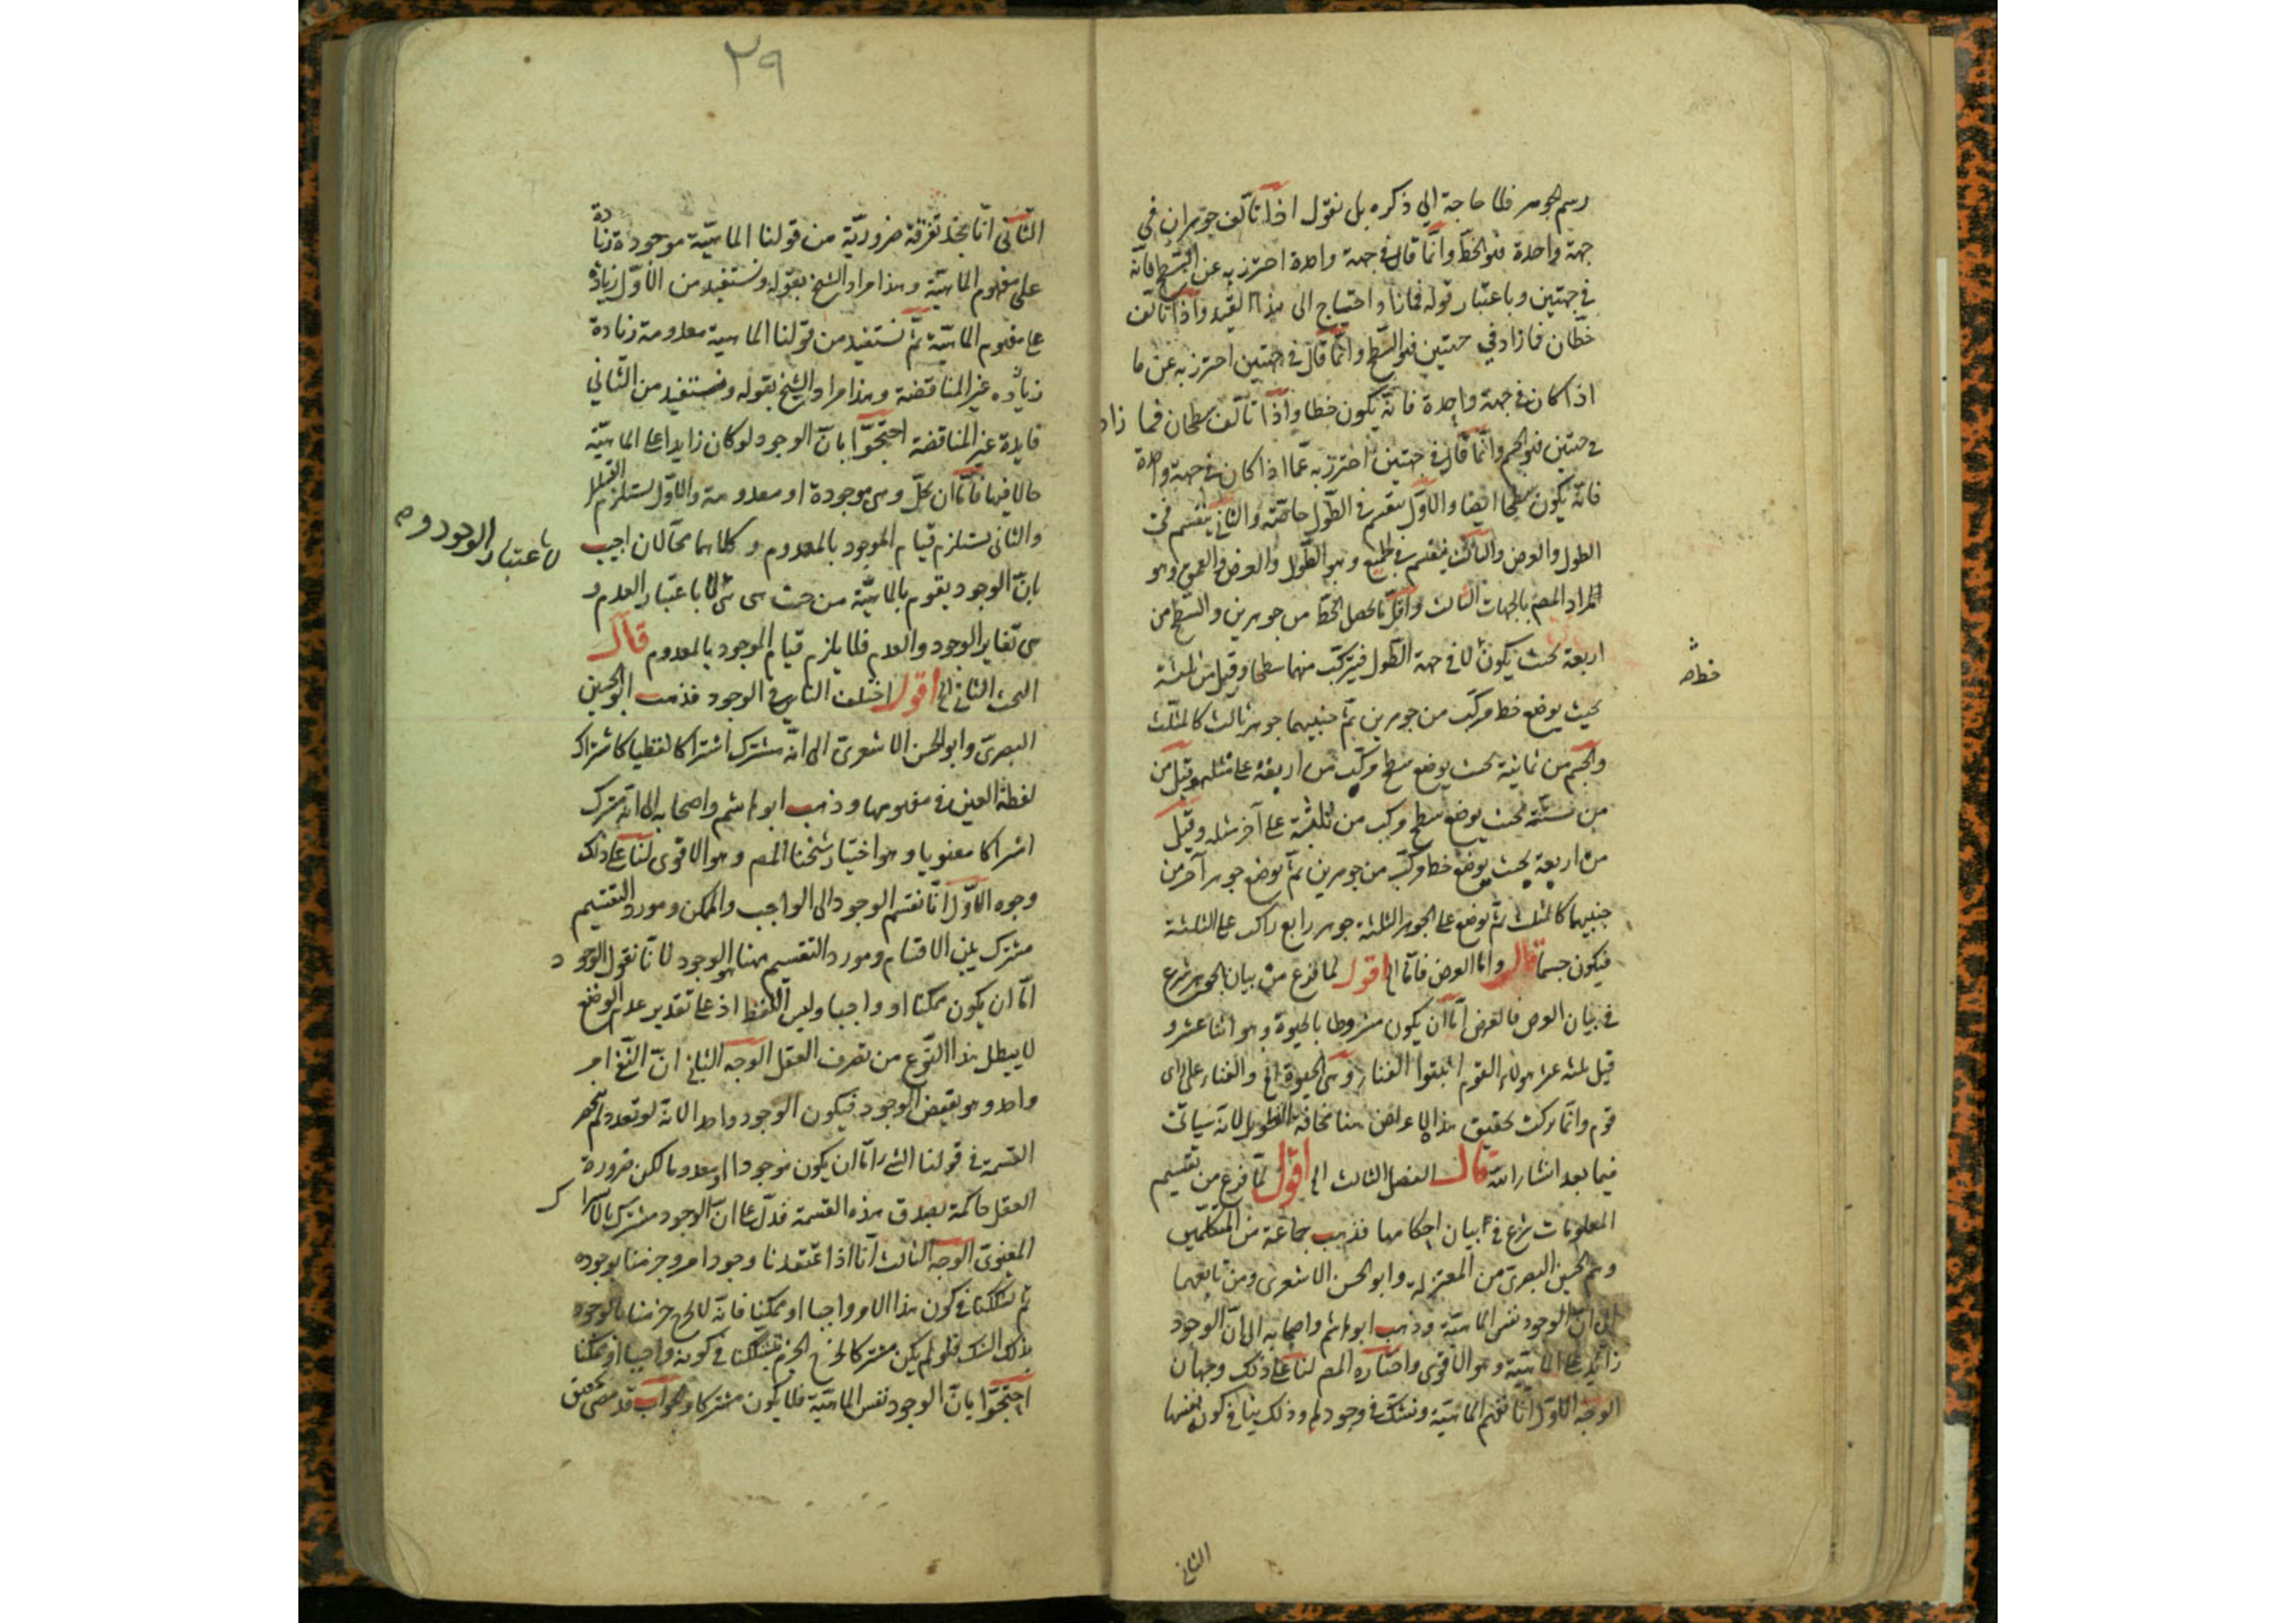 رسم الجوهر فلا حاجة الي ذكره بل نقول اذا تألف جوهران في
جهة واحدة فهو الخط وانما قال في جهة واحدة احترز به عن السطح فانه
في جهتين وباعتبار قوله فمازاد احتياج الى هذا القيد واذا تألف
خطان فمازاد في جهتين فهو السطح وانما قال في جهتين احترز به عن ما
اذا كان في جهة واحدة فانه يكون خطا واذا تألف سطحان فما زاد
في جهتين فهو الجسم وانما قال في جهتين احترز به عما اذا كان في جهة واحدة
فانه يكون سطحا ايضا والاول ينقسم في الطول خاصة والثاني ينقسم في
الطول والعرض والثالث ينقسم في الجميع وهو الطول والعرض والعمق وهو
المراد المصم بالجهات الثالث واقل ما يحصل الخط من جوهرين والسطح من
اربعة بحيث يكون لا في جهة الطول فيتركب منهما سطحا وقيل من ثلثة
خط صه
بحيث يوضع خط مركب من جوهرين ثم جنبيهما جوهر ثالث كالمثلث
والجسم من ثمانية بحيث يوضع سطح مركب من اربعة على مثله وقيل من
من ستة بحيث يوضع سطح مركب من ثلثة على آخر مثله وقيل
من اربعة بحيث يوضع خط مركب من جوهرين ثم يوضع جوهر آخر من
جنبيهما كالمثلث ثم يوضع على الجوهر الثلثة جوهر رابع راكب على الثلثة
فيكون جسما قال واما العرض فاما الى اقول لما فرغ من بيان الجوهر شرع
في بيان العرض فالعرض اما ان يكون مشروطا بالحيوة وهو اثنا عشر و
قيل ثلثه عشر هولاء القوم اثبتوا الفناء وهي الحيوة الخ والفناء على راى
قوم وانما تركت تحقيق هذا الاعراض هنا مخافة التطويل لانه سياتى
فيما بعد انشاء الله قال الفصل الثالث الى اقول لما فرغ من تقسيم
المعلومات شرع في بيان احكامها فذهب جماعة من المتكلمين
وهم الحسين البصرى من المعتزلة وابو الحسن الاشعرى ومن تابعهما
الى ان الوجود نفس الماهية وذهب ابو هاشم واصحابه الى ان الوجود
زائد على الماهية وهو الاقوى واختاره المصم لنا على ذلك وجهان
الوجه الاول انا نفهم الماهية ونشك في وجودها وذلك ينافي كون نفسها
الثاني
٢٩
الثاني انا نجد تفرقة ضرورية من قولنا الماهية موجودة زيادة
على مفهوم الماهية وهذا مراد الشيخ بقوله ونستفيد من الاول زيادة
على مفهوم الماهية ثم نستفيد من قولنا الماهية معدومة زيادة
زيادة غير المناقضة وهذا مراد الشيخ بقوله ونستفيد من الثاني
فايدة غير المناقضة احتجوا بان الوجود لو كان زايدا على الماهية
حالا فيها فاما ان يحل وهي موجودة او معدومة والاول يستلزم التسلسل
والثاني يستلزم قيام الموجود بالمعدوم وكلاهما محالان اجيب
لا باعتبار الوجود و صه
بان الوجود يقوم بالماهية من حيث هي هي لا باعتبار العدم و
هي تغاير الوجود والعدم فلا يلزم قيام الموجود بالمعدوم قال
البحث الثاني الى اقول اختلف الناس في الوجود فذهب ابو الحسين
البصرى وابو الحسن الاشعرى الى انه مشترك اشتراكا لفظيا كاشتراك
لفظة العين في مفهومها وذهب ابو هاشم واصحابه الى انه مشترك
اشتراكا معنويا وهو اختيار شيخنا المصم وهو الاقوى لنا على ذلك
وجوه الاول انا نقسم الوجود الى الواجب والممكن ومورد التقسيم
مشترك بين الاقسام ومورد التقسيم ههنا هو الوجود لانا نقول الوجود
اما ان يكون ممكنا او واجبا وليس اللفظ اذ على تقدير عدم الوضع
لا يبطل هذا النوع من تصرف العقل الوجه الثاني ان النفي امر
واحد وهو نقيض الوجود فيكون الوجود واحدا لانه لو تعدد لم تنحصر
القسمة في قولنا الشئ اما ان يكون موجودا او معدوما لكن ضرورة
العقل حاكمة بصدق هذه القسمة فدل على ان الوجود مشترك بالاشتراك
المعنوى الوجه الثالث انا اذا اعتقدنا وجود امر وجزمنا بوجوده
ثم شككنا في كون هذا الامر واجبا او ممكنا فانه لا يخرج جزمنا بالوجود
بذلك الشك فلو لم يكن مشتركا لخرج الجزم بتشككنا في كونه واجبا او ممكنا
احتجوا بان الوجود نفس الماهية فلا يكون مشتركا والجواب قد مضى تحقيق